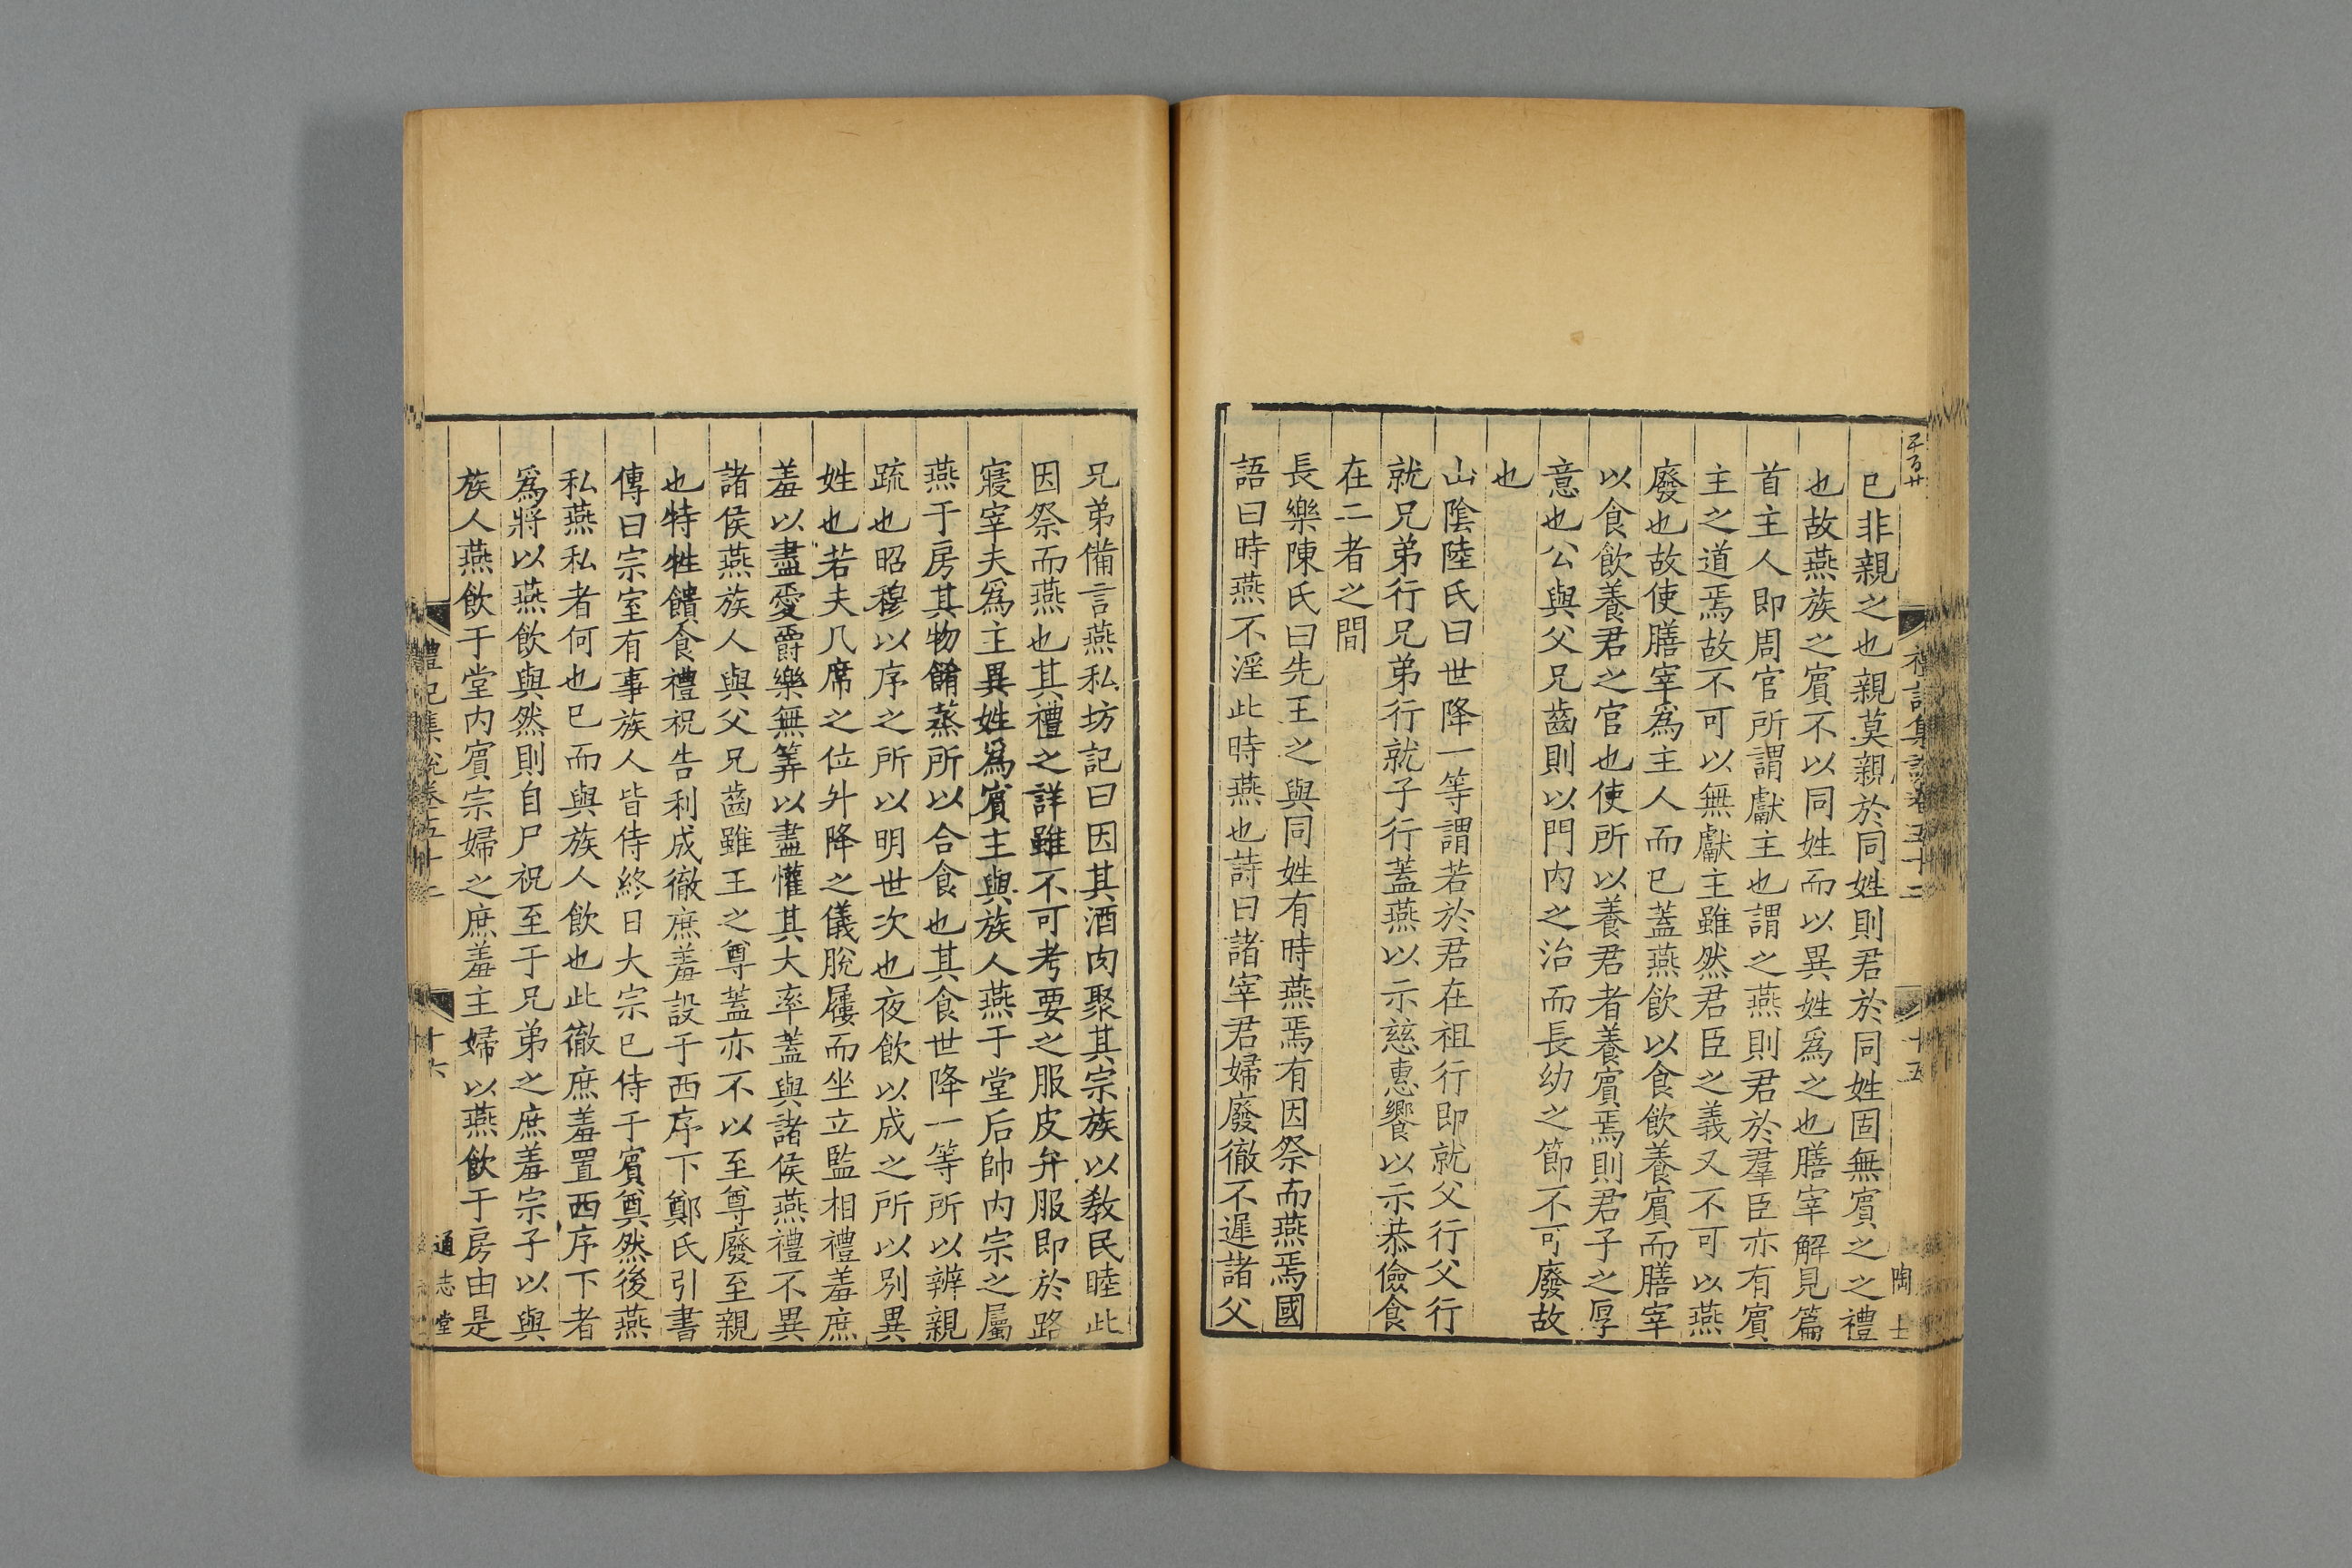 已非親之也親莫親於同姓則君於同姓固無賔之之禮
也故燕族之賔不以同姓而以異姓爲之也膳宰解見篇
首主人即周官所謂獻主也謂之燕則君於羣臣亦有賔
主之道焉故不可以無獻主雖然君臣之義又不可以燕
廢也故使膳宰爲主人而已蓋燕飲以食飲養賔而膳宰
以食飲養君之官也使所以養君者養賔焉則君子之厚
意也公與父兄齒則以門内之治而長幼之節不可廢故
也
山隂陸氏曰世降一等謂若於君在祖行即就父行父行
就兄弟行兄弟行就子行蓋燕以示慈惠饗以示恭儉食
在二者之間
長樂陳氏曰先王之與同姓有時燕焉有因祭而燕焉國
語曰時燕不淫此時燕也詩曰諸宰君婦廢徹不遲諸父
陶士
禮記集說卷五十二
十五
兄弟備言燕私坊記曰因其酒肉聚其宗族以敎民睦此
因祭而燕也其禮之詳雖不可考要之服皮弁服即於路
寢宰夫爲主異姓爲賔主與族人燕于堂后帥内宗之屬
燕于房其物餚蒸所以合食也其食世降一等所以辨親
疏也昭穆以序之所以明世次也夜飲以成之所以别異
姓也若夫几席之位升降之儀脫屨而坐立監相禮羞庶
羞以盡愛爵樂無筭以盡懽其大率蓋與諸侯燕禮不異
諸侯燕族人與父兄齒雖王之尊蓋亦不以至尊廢至親
也特牲饋食禮祝告利成徹庶羞設于西序下鄭氏引書
傳曰宗室有事族人皆侍終日大宗已侍于賔奠然後燕
私燕私者何也已而與族人飲也此徹庶羞置西序下者
爲將以燕飲與然則自尸祝至于兄弟之庶羞宗子以與
族人燕飲于堂内賔宗婦之庶羞主婦以燕飲于房由是
禮記集說卷五十二
十六
通志堂